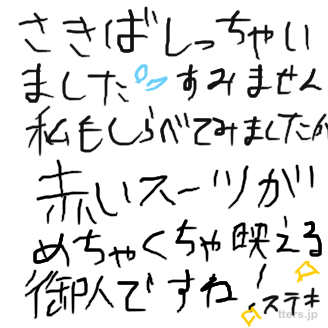 さきばしっちゃい
ました すみません
私もしらべてみましたが
赤いスーツが
めちゃくちゃ映える
御人ですね!
ステキ
tters.jp